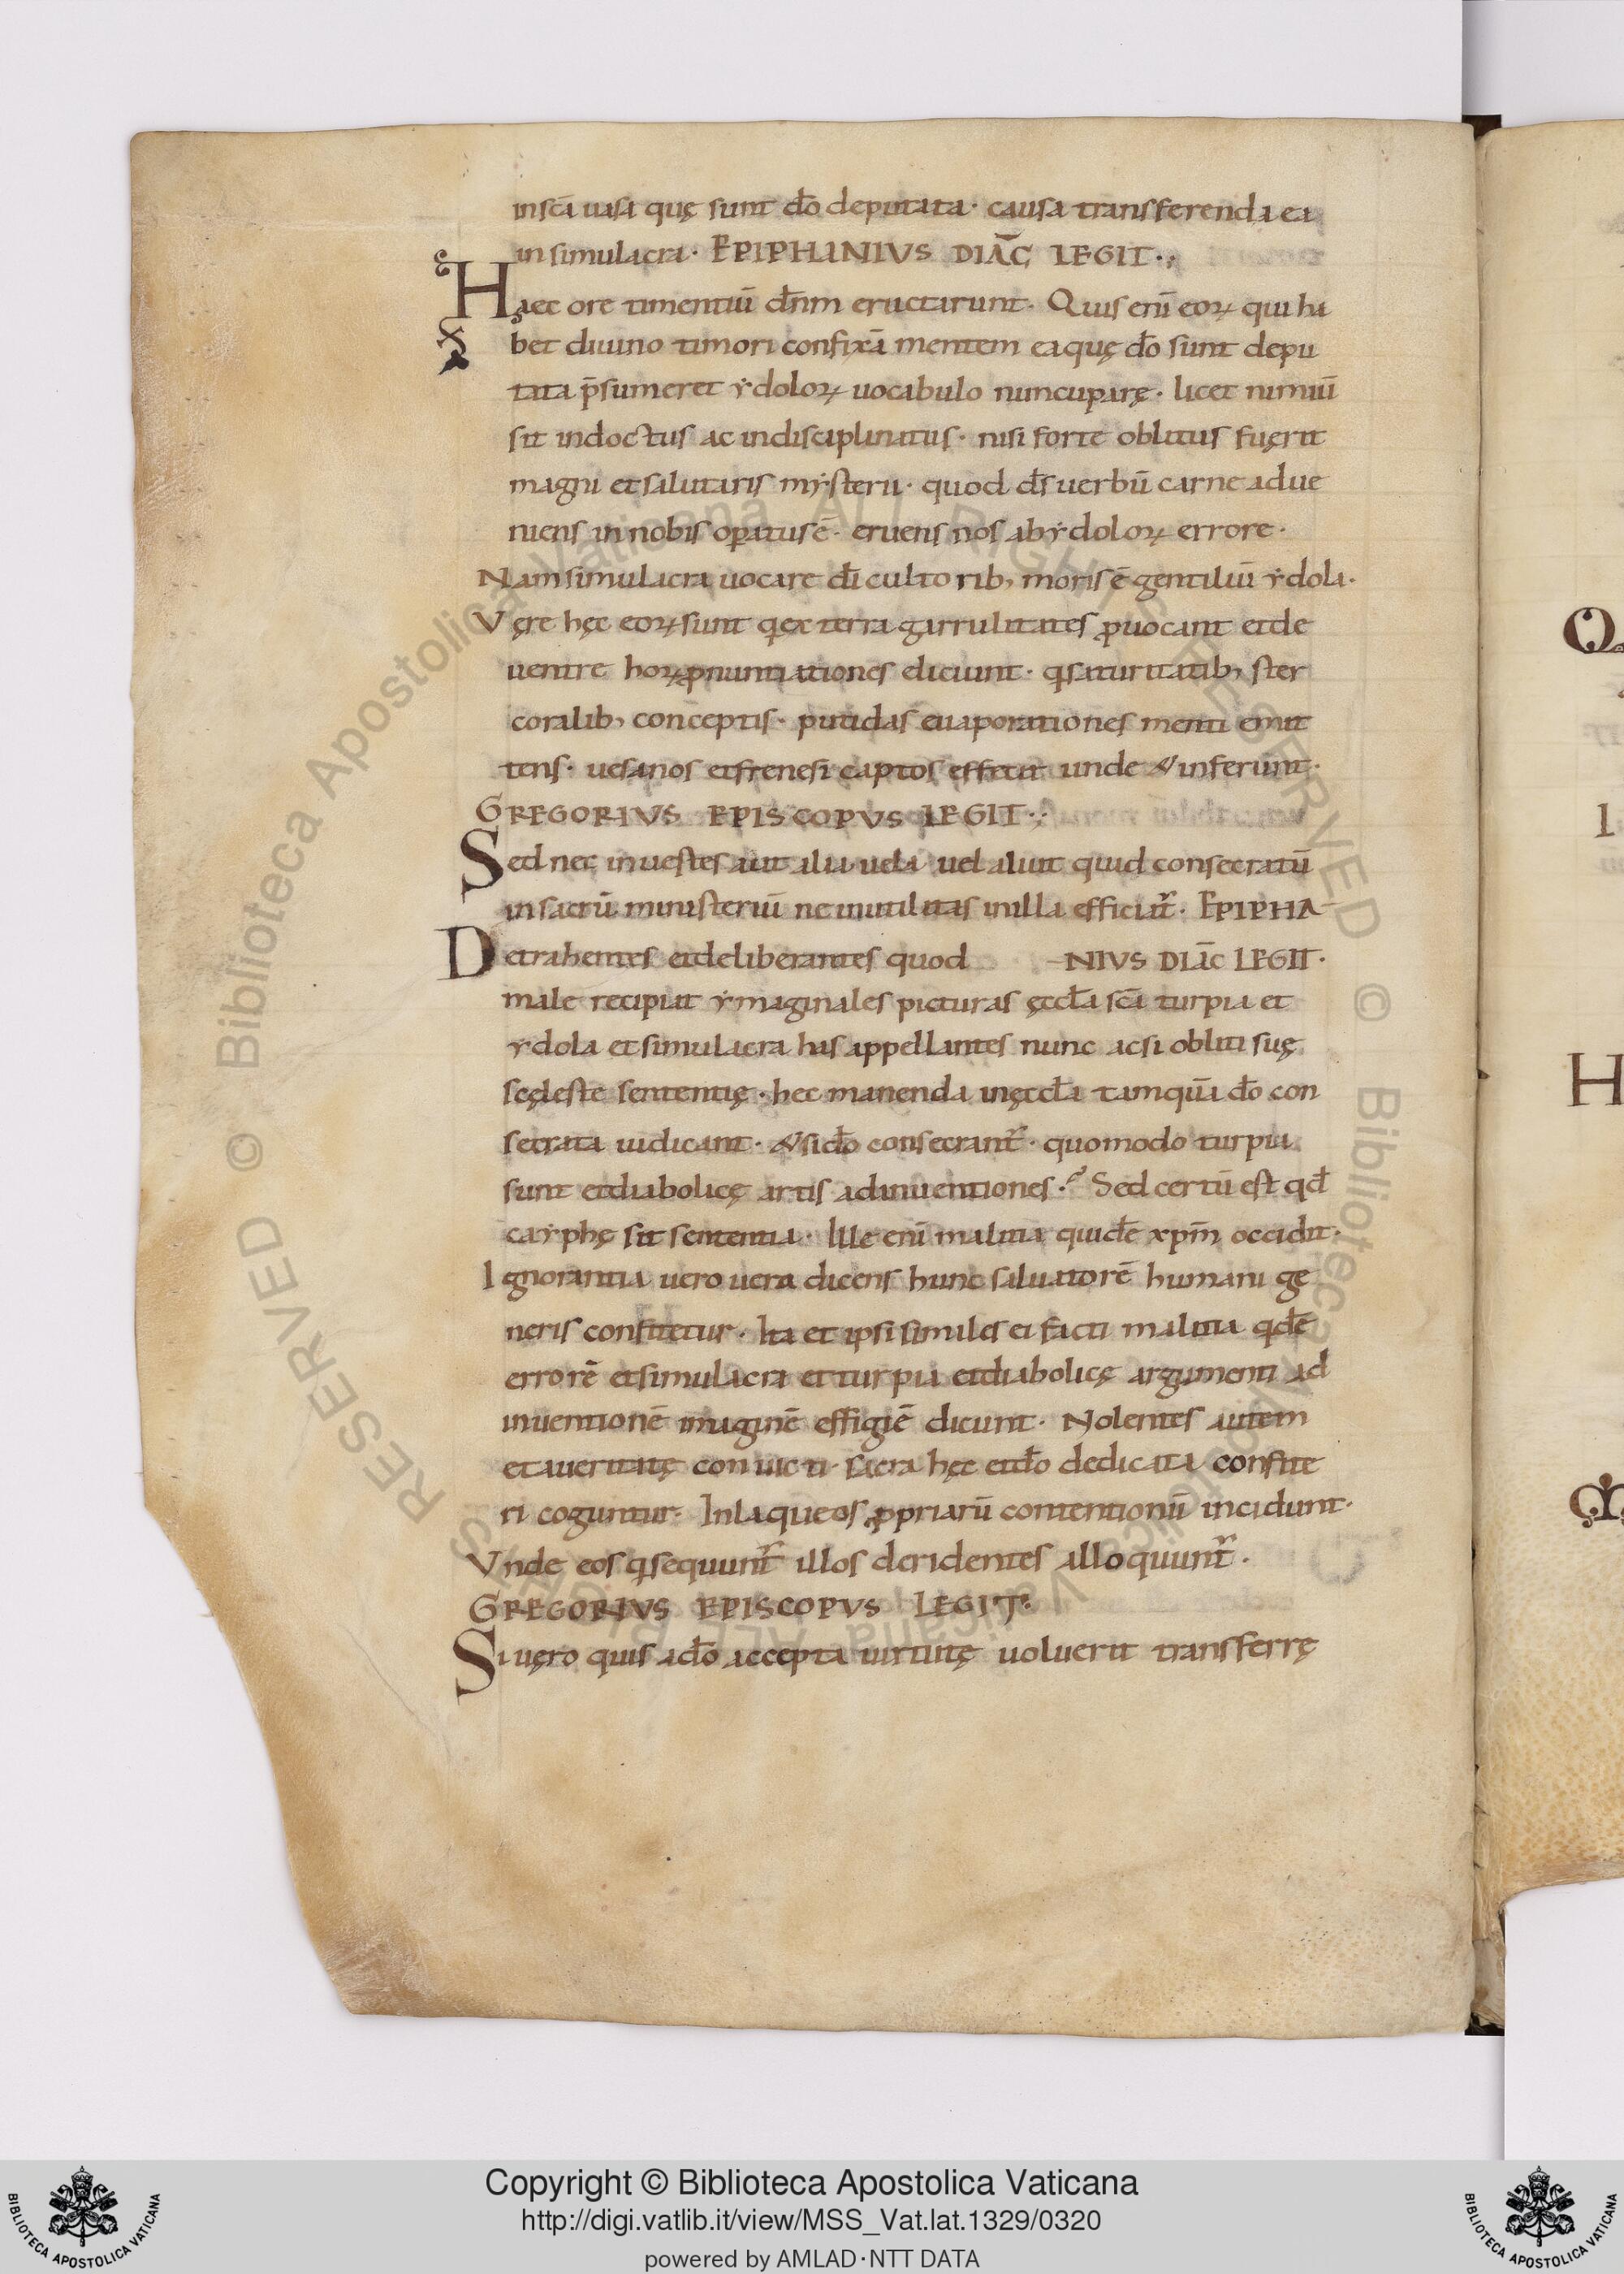 in scā uasa quę sunt dō deputata · causa transferenda ea
in simulacra · EPIPHANIVS DIAC̄ LEGIT ·,
Haec ore timentiū dn̄m eructarunt · Quis enī eoꝝ qui ha
bet diuino timori confixā mentem ea quę dō sunt depu
tata p̄sumeret ẏdoloꝝ uocabulo nuncuparę · licet nimiū
sit indoctus ac indisciplinatus · nisi forte oblitus fuęrit
magni et salutaris mẏsterii · quod ds̄ uerbū carne adue
niens in nobis oꝑatus ē · eruens nos ab ẏdoloꝝ errore ·
Nam simulacra uocare dī cultorib, moris ē gentiliū ẏdola ·
Vęre hęc eoꝝ sunt q ex terra garrulitates ꝓuocant et de
uentre hoꝝ ꝓnuntiationes eliciunt · q saturitatib, ster
coralib, conceptis · putidas euaporationes menti emit
tens · uesanos et frenesi captos effecit unde & inferunt ·
GREGORIVS EPISCOPVS LEGIT ·,·
Sed nec in uestes aut alia uela uel aliut quid consecratū
in sacrū ministeriū ne inutilitas in illa efficiat̄ · EPIPHA
Detrahentes et deliberantes quod —NIVS DIAC̄ LEGIT ·
male recipiat ẏmaginales picturas ęccła scā turpia et
ẏdola et simulacra has appellantes nunc ac si obliti suę
scęleste sententię · hec manenda in ęccła tamquā dō con
secrata iudicant · & si dō consecrant̄ · quomodo turpia
sunt et diabolicę artis adinuentiones · Sed certū est qđ
caẏphę sit sententia · Ille enī malitia quidē xpm̄ occidit ·
Ignorantia uero uera dicens hunc saluatorē humani ge
neris confitetur · Ita et ipsi similes ei facti malitia qdē
errorē et simulacra et turpia et diabolicę argumenti ad
inuentionē imaginē effigiē dicunt · Nolentes autem
et a ueritatę conuicti · sacra hęc et dō dedicata confite
ri coguntur · In laqueos ꝓpriarū contentionū incidunt ·
Vnde eos q sequunt̄ illos deridentes alloquunt̄ ·
GREGORIVS EPISCOPVS LEGIT ·
Si uęro quis a dō accepta uirtutę uoluerit transferrę
Copyright © Biblioteca Apostolica Vaticana
http://digi.vatlib.it/view/MSS_Vat.lat.1329/0320
powered by AMLAD·NTT DATA